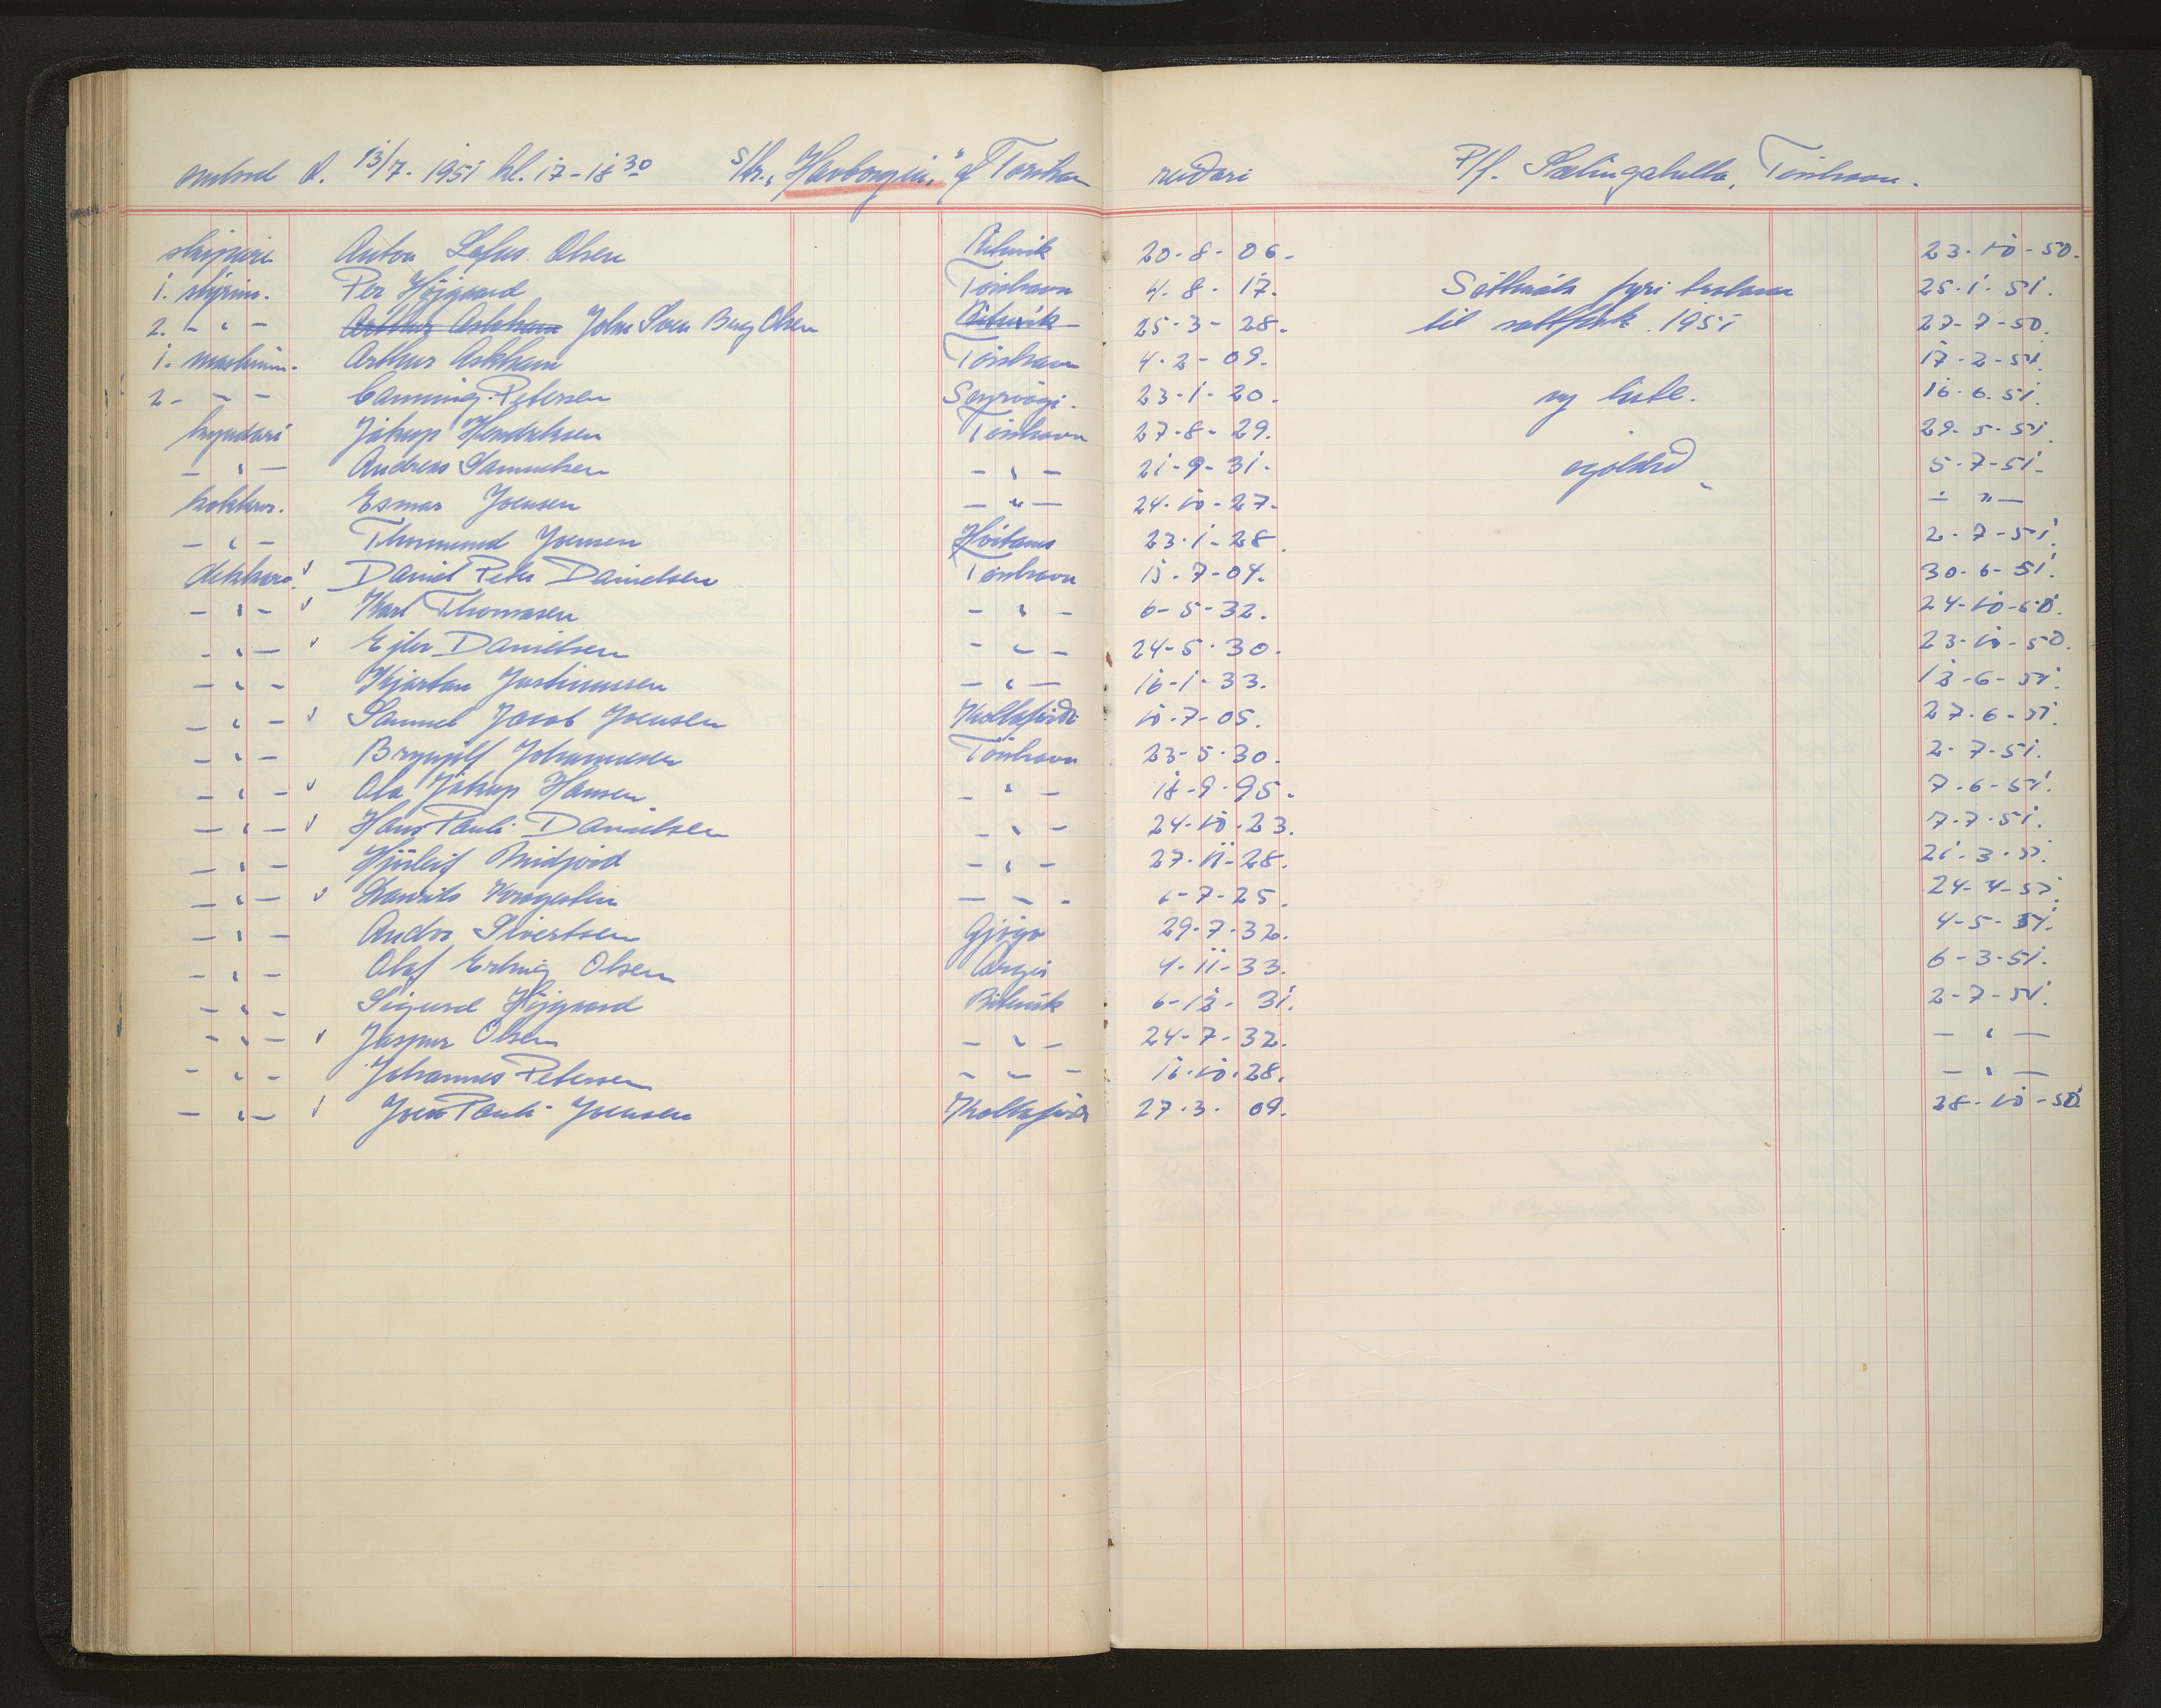 d. 13/7. 1951 kl. 17-18 30 s/tr. "Havborgin" af Torshavn reiðari P/f. Tórshavn.
skipari Anton Olsen Rituvík 20-8-06. 23-10-50.
1. stýrim. Per Højgaard Tórshavn 4-8-17. fyri trolarar 25-1-51.
2. - " - Arthur Askham John Sven Berg Olsen Rituvík 25-3-28. til saltfisk 1951 27-7-50.
1. maskinm. Arthur Askham Tórshavn 4-2-09. 17-2-51.
2 - " - Canning Petersen Sørvági. 23-1-20. ny liste. 16-6-51.
kyndari Jákup Hendriksen Tórshavn 27-8-29. 29-5-51.
- " - Andreas Samuelsen - " - 21-9-31. 5-7-51.
kokkur. Esmar Joensen - " - 24-10-27. - " -
- " - Thormund Joensen 23-1-28. 2-7-51.
dekkari Daniel Peter Danielsen Tórshavn 15-7-04. 30-6-51.
- " - Karl Thomasen - " - 6-5-32. 24-10-50.
- " - Ejler Danielsen - " - 24-5-30. 23-10-50.
- " - Kjartan Justinussen - " - 16-1-33. 12-6-51.
- " - Samuel Jacob Joensen Kollafjørð 10-7-05. 27-6-51.
- " - Brynjolf Johannesen Tórshavn 23-5-30. 2-7-51.
- " - Ola Jákup Hansen - " - 18-9-95. 7-6-51.
- " - Hans Pauli Danielsen - " - 24-10-23. 7-7-51.
- " - Hjörleif - " - 27-11-28. 21-3-51.
- " - - " - 6-7-25. 24-4-51.
- " - Sivertsen Gjógv 29-7-32. 4-5-51.
- " - Olaf Erling Olsen Argir 4-11-33. 6-3-51.
- " - Sigurd Højgaard Rituvík 6-12-31. 2-7-51.
- " - Jaspur Olsen - " - 24-7-32. - " -
- " - Johannes Petersen - " - 16-10-28. - " -
- " - Joen Pauli Joensen Kollafjørð 27-3-09. 28-10-50.